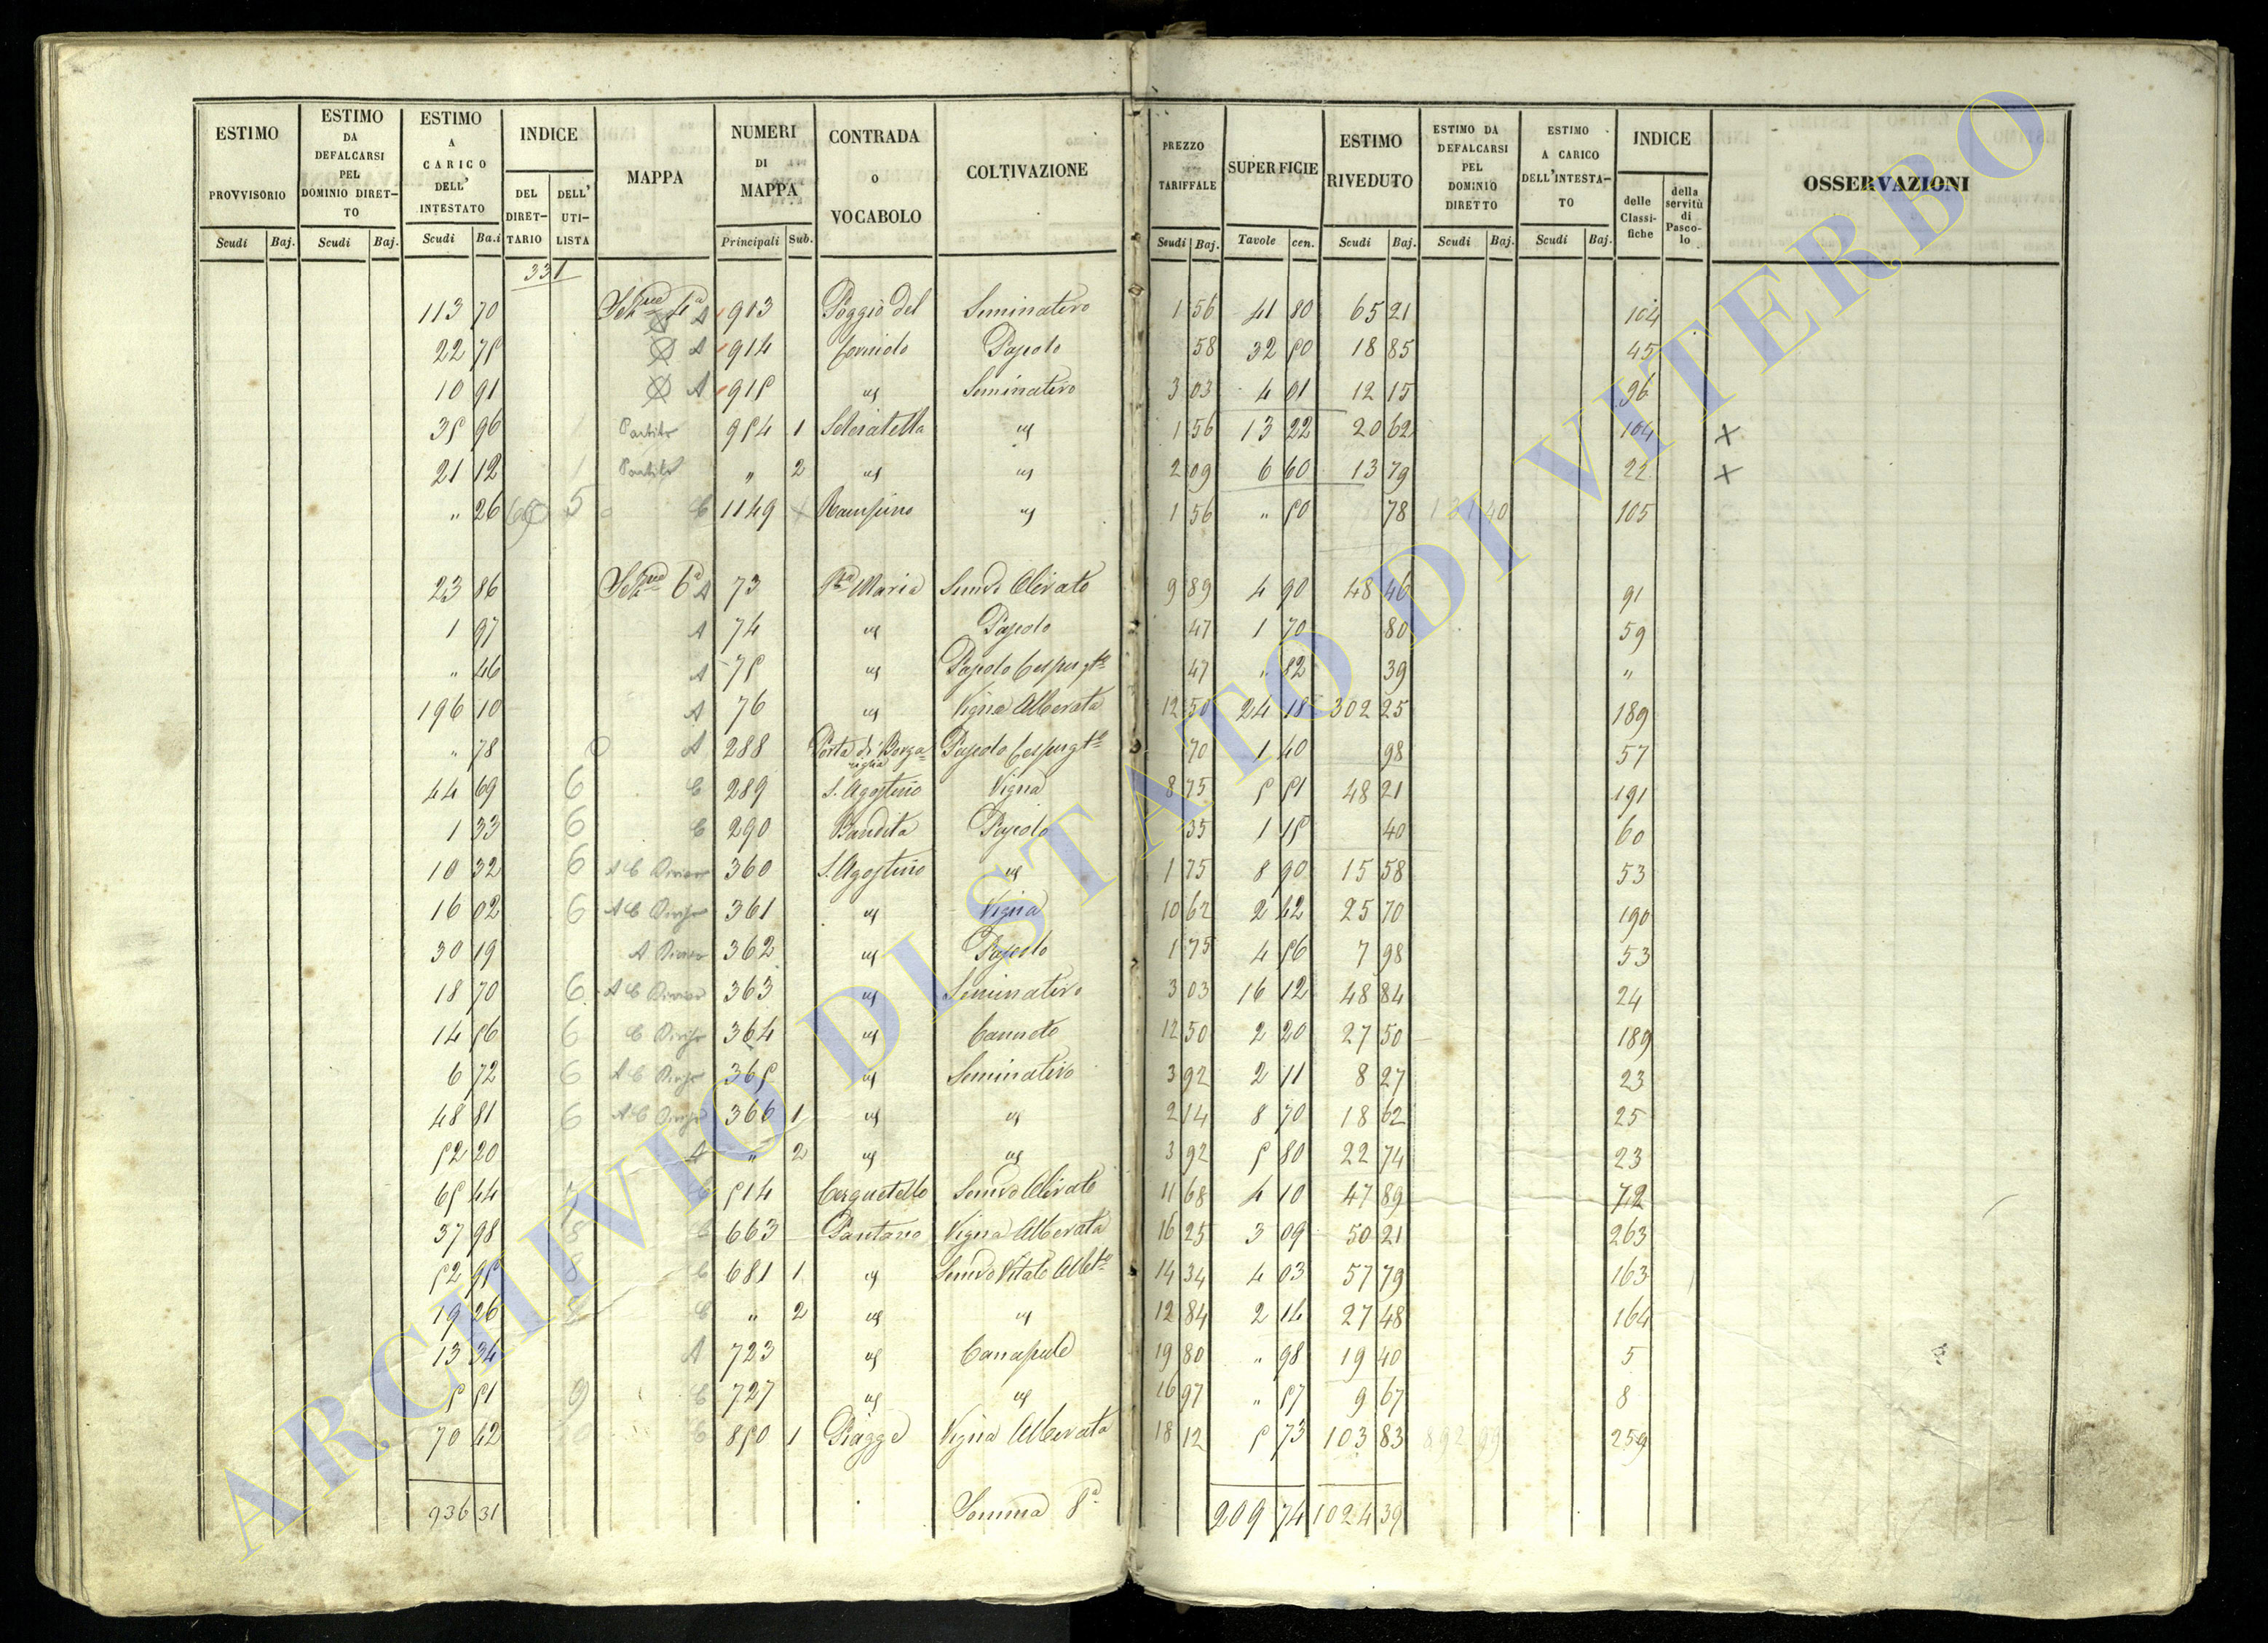 ESTIMO PROVVISORIO Scudi Baj.
ESTIMO DA DEFALCARSI PEL DOMINIO DIRETTO Scudi Baj.
ESTIMO A CARICO DELL' INTESTATO Scudi Ba.i
INDICE DEL DIRETTARIO DELL' UTILISTA
MAPPA
NUMERI DI MAPPA Principali Sub.
CONTRADA O VOCABOLO
COLTIVAZIONE
PREZZO TARIFFALE Scudi Baj.
SUPERFICIE Tavole cen.
ESTIMO RIVEDUTO Scudi Baj.
ESTIMO DA DEFALCARSI PEL DOMINIO DIRETTO Scudi Baj.
ESTIMO A CARICO DELL'INTESTATO Scudi Baj.
INDICE delle Classifiche della servitù di Pascolo
OSSERVAZIONI
331
113 70 A 913 Poggio del Seminativo 1 56 41 80 65 21 104
22 75 A 914 Corniolo Pascolo 58 32 50 18 85 45
10 91 A 915 " Seminativo 3 03 4 01 12 15 96
35 96 Partito 954 1 " 1 56 13 22 20 62 104 X
21 12 Partito " 2 " " 2 09 6 60 13 79 22 X
" 26 5 C 1149 " 1 56 " 50 78 105
23 86 6a A 73 Maria Semvo Olivato 9 89 4 90 48 46 91
1 97 A 74 " Pascolo 47 1 70 80 59
" 46 A 75 " Pascolo 47 " 82 39 "
196 10 A 76 " Vigna Alberata 12 50 24 18 302 25 189
" 78 A 288 Porta di Pascolo 70 1 40 98 57
44 69 6 C 289 S. Agostino Vigna 8 75 5 51 48 21 191
1 33 6 C 290 Bandita Pascolo 35 1 15 40 60
10 32 6 A C 360 S. Agostino " 1 75 8 90 15 58 53
16 02 6 A C 361 " Vigna 10 62 2 42 25 70 190
30 19 A 362 " Pascolo 1 75 4 56 7 98 53
18 70 6 A C 363 " Seminativo 3 03 16 12 48 84 24
14 56 6 C 364 " Canneto 12 50 2 20 27 50 189
6 72 6 A C 365 " Seminativo 3 92 2 11 8 27 23
48 81 6 A C 366 1 " " 2 14 8 70 18 62 25
52 20 A " 2 " " 3 92 5 80 22 74 23
65 44 7 C 514 Cerquetello Semvo Olivato 11 68 4 10 47 89 72
37 98 8 C 663 Pantano Vigna Alberata 16 25 3 09 50 21 263
52 95 8 C 681 1 " Semvo Vitato Albto 14 34 4 03 57 79 163
19 26 8 C " 2 " " 12 84 2 14 27 48 164
13 34 A 723 " Canapule 19 80 " 98 19 40 5
5 51 9 C 727 " " 16 97 " 57 9 67 8
70 42 C 850 1 Piagge Vigna Alberata 18 12 5 73 103 83 259
936 31 Somma 8a 209 74 1024 39
ARCHIVIO DI STATO DI VITERBO